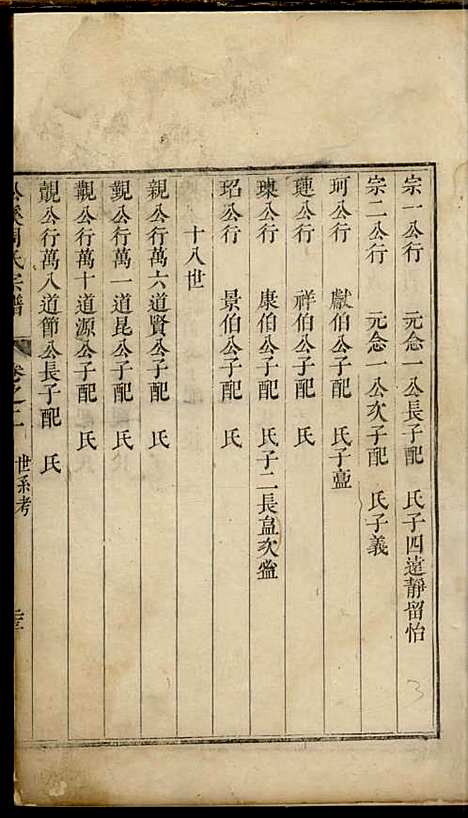 宗一公行　元念一公長子配　氏子四遠靜留怡
宗二公行　元念一公次子配　氏子義
珂公行　獻伯公子配　氏子
璉公行　祥伯公子配　氏
璖公行　康伯公子配　氏子二長　次
玿公行　景伯公子配　氏
十八世
親公行萬六道賢公子配　氏
覲公行萬一道昆公子配　氏
觀公行萬十道源公子配　氏
覿公行萬八道節公長子配　氏
周氏宗譜　卷之二　世系考
3